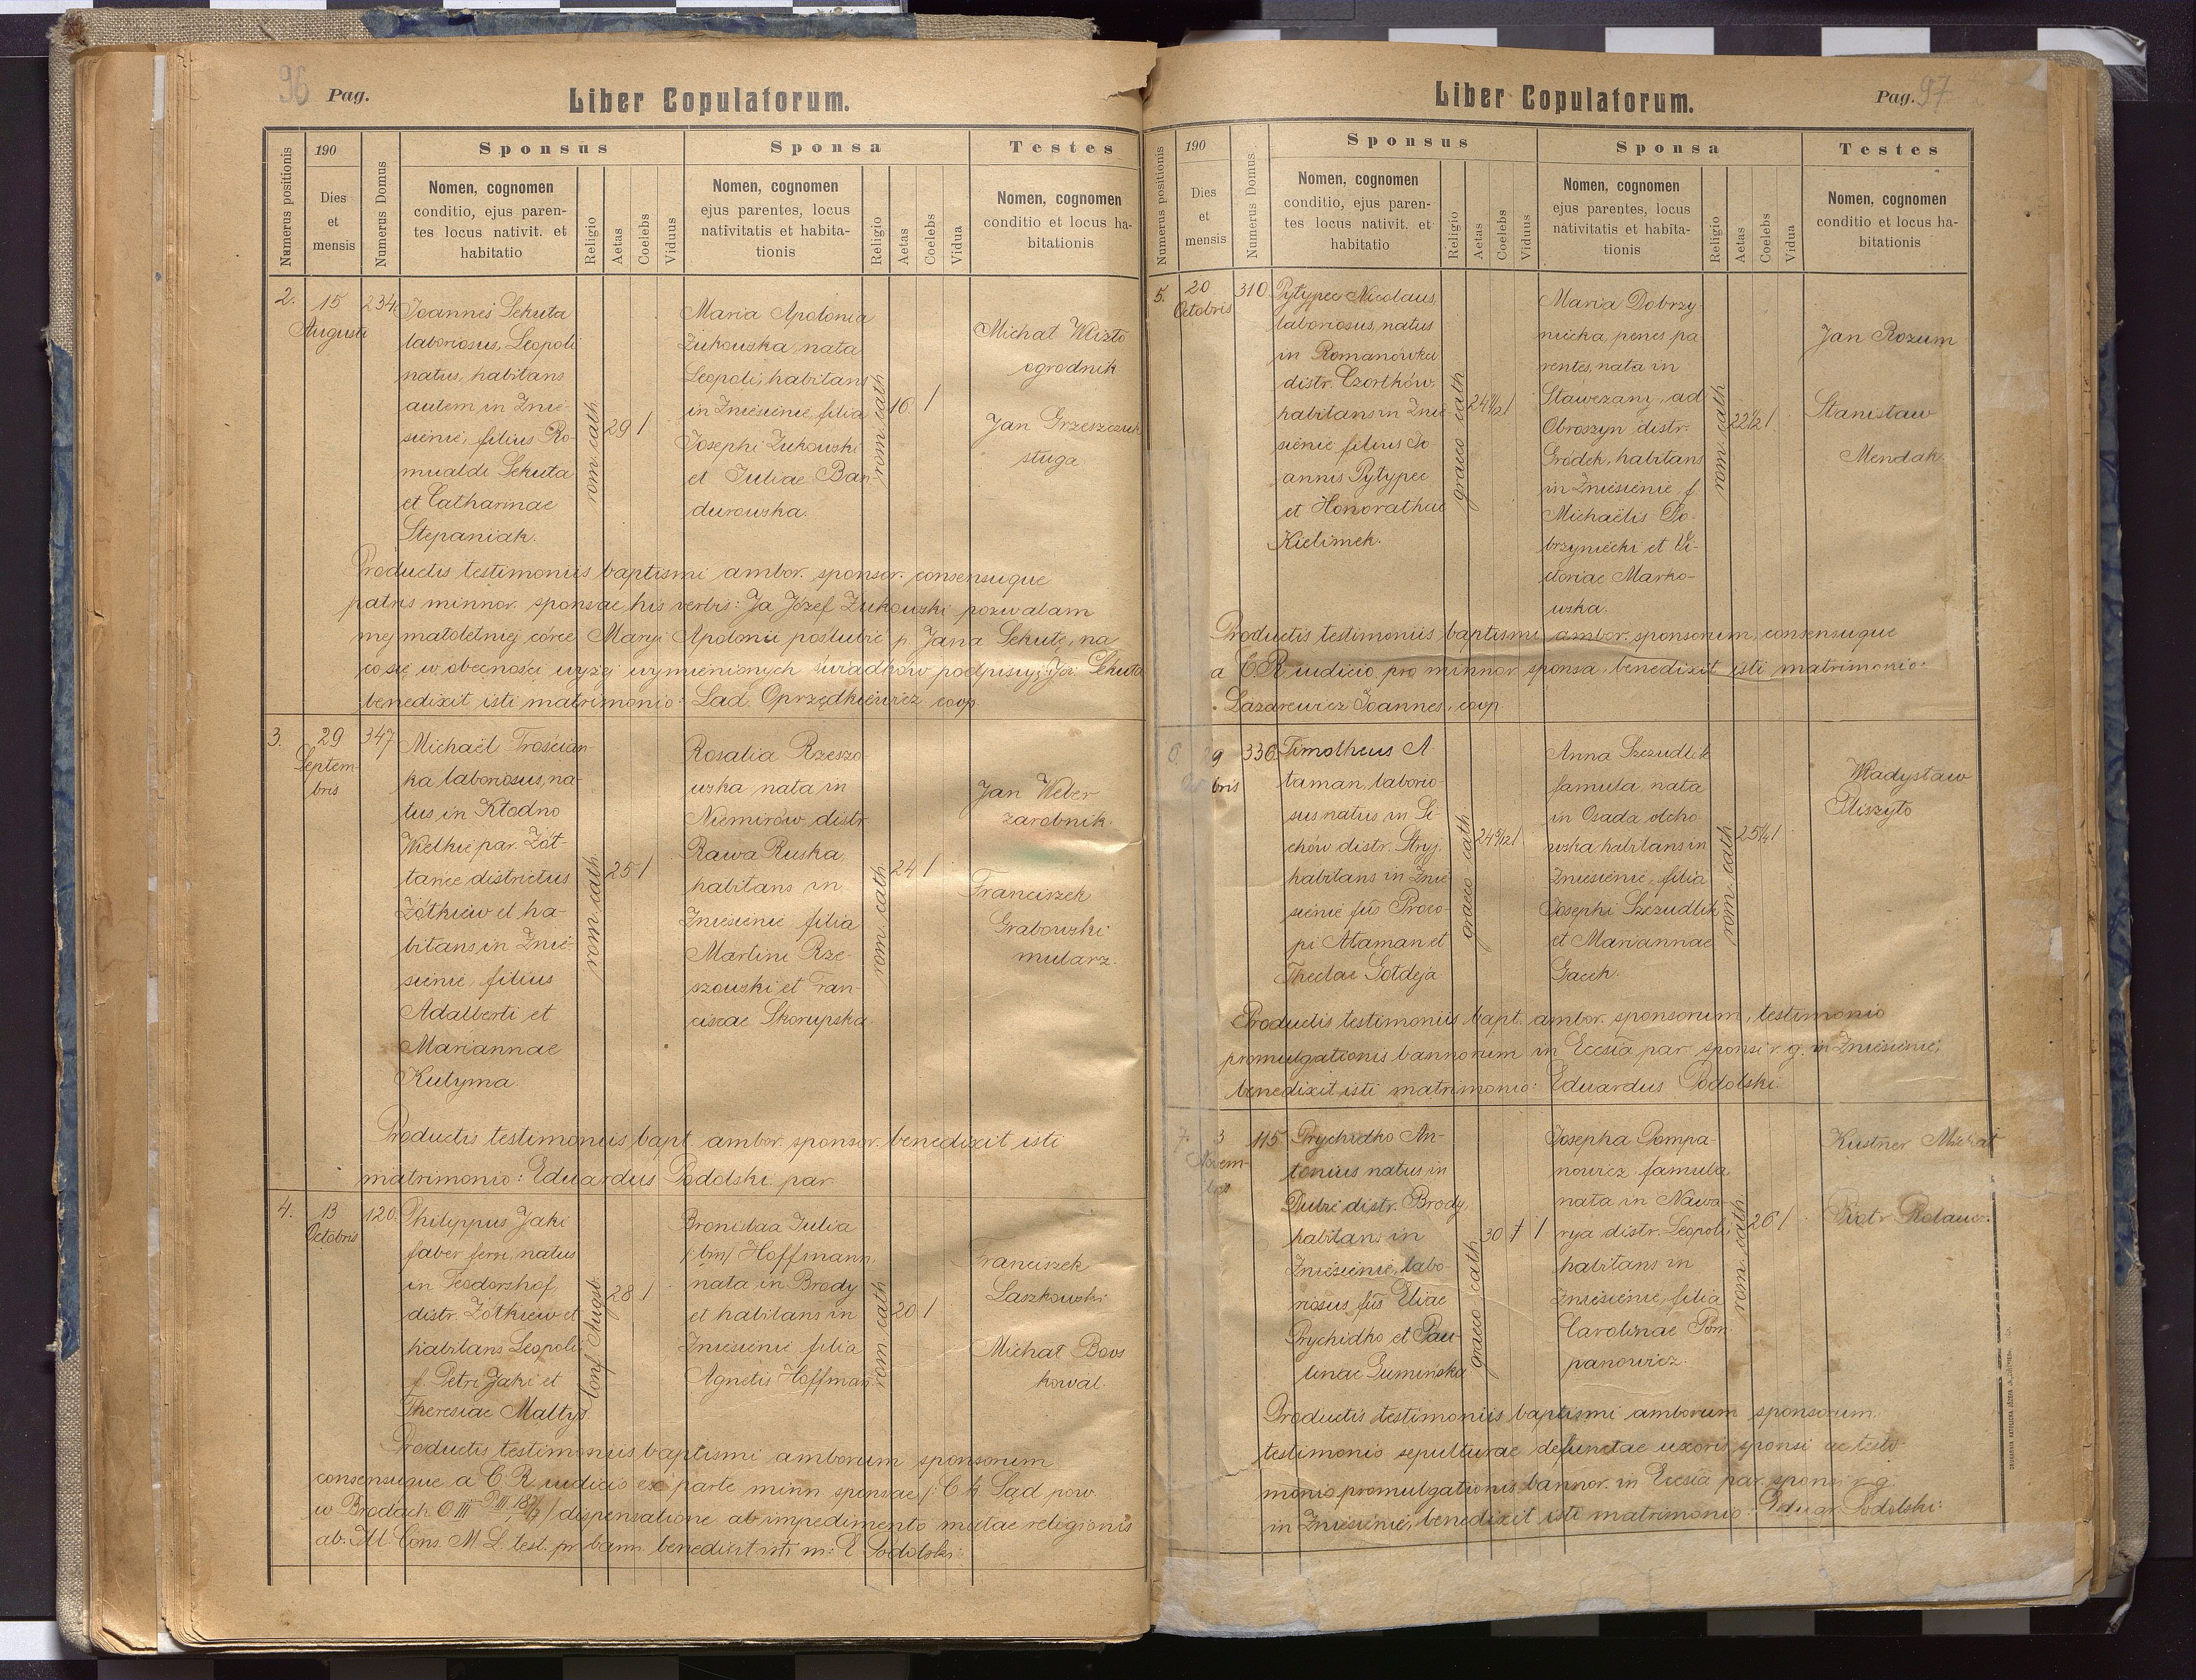 96 Pag.
Liber Copulatorum.
Numerus positionis
190
Dies
et
mensis
Numerus Domus
Sponsus
Nomen, cognomen
conditio, ejus paren-
tes locus nativit. et
habitatio
Religio
Aetas
Coelebs
Viduus
Sponsa
Nomen, cognomen
ejus parentes, locus
nativitatis et habita-
tionis
Religio
Aetas
Coelebs
Vidua
Testes
Nomen, cognomen
conditio et locus ha-
bitationis
2.
15
Augusti
234
Joannes Sekuta
laboriosus, Leopoli
natus, habitans
autem in Znie-
sienie, filius Ro-
mualdi Sekuta
et Catharinae
Stepaniak.
rom. cath.
29
1
Maria Apolonia
Żukowska, nata
Leopoli, habitans
in Zniesienie, filia
Josephi Żukowski
et Juliae Ban-
durowska.
rom. cath.
16
1
Michał
ogrodnik
Jan Grzeszczuk
sługa
Productis testimoniis baptismi ambor. sponsor. consensuque
patris minnor. sponsae, his verbis: Ja Józef Żukowski pozwalam
mej małoletniej córce Maryi Apolonii poślubić p. Jana Sekutę, na
co się w obecności wyżej wymienionych świadków podpisuję:
benedixit isti matrimonio: Lad. Oprzędkiewicz coop.
3.
29
Septem-
bris
347
Michaël Trościan-
ka laboriosus, na-
tus in Kłodno
Wielkie par. Żół-
tańce districtus
Żółkiew et ha-
bitans in Znie-
sienie, filius
Adalberti et
Mariannae
Kutyma.
rom. cath.
25
1
Rosalia Rzeszo-
wska nata in
Niemirów, distr.
Rawa Ruska,
habitans in
Zniesienie filia
Martini Rze-
szowski et Fran-
ciscae Skorupska.
rom. cath.
24
1
Jan Weber
zarobnik.
Franciszek
Grabowski
mularz.
Productis testimoniis bapt. ambor. sponsor. benedixit isti
matrimonio: Eduardus Podolski par.
4.
13
Octobris
120.
Philippus Jaki
faber ferri, natus
in Teodorshof,
distr. Żółkiew et
habitans Leopoli
f. Petri Jaki et
Theresiae Maltys.
Conf. August.
28
1
Bronislaa Julia
/bin/ Hoffmann,
nata in Brody
et habitans in
Zniesienie filia
Agnetis Hoffman
rom. cath.
20
1
Franciszek
Laszkowski
Michał Boos
kowal.
Productis testimoniis baptismi amborum sponsorum
consensuque a C. R. iudicio ex parte minn. sponsae /: C. k. Sąd pow.
w Brodach /dispensatione ab impedimento mixtae religionis
ab. Ill. Cons. M. L. test. pr. bann. benedixit isti m: E. Podolski.
Liber Copulatorum.
Pag. 97
Numerus positionis
190
Dies
et
mensis
Numerus Domus
Sponsus
Nomen, cognomen
conditio, ejus paren-
tes locus nativit. et
habitatio
Religio
Aetas
Coelebs
Viduus
Sponsa
Nomen, cognomen
ejus parentes, locus
nativitatis et habita-
tionis
Religio
Aetas
Coelebs
Vidua
Testes
Nomen, cognomen
conditio et locus ha-
bitationis
5.
20
Octobris
310
Pytypec Nicolaus,
laboriosus, natus
in Romanówka
distr. Czortków,
habitans in Znie-
sienie filius Jo-
annis Pytypec
et Honorathae
Kielimek.
graeco cath.
1
Maria Dobrzy
niecka, penes pa
rentes, nata in
Stawczany, ad
Obroszyn distr.
Gródek, habitans
in Zniesienie f.
Michaëlis Do-
brzyniecki et Vi-
ctoriae Marko-
wska.
rom. cath.
1
Jan Rozum
Stanisław
Mendak.
Productis testimoniis baptismi ambor. sponsorum, consensuque
a C. R. iudicio pro minnor. sponsa, benedixit isti matrimonio:
Lazarewicz Joannes, coop.
6.
9
bris
336.
Timotheus A
taman, laborio-
sus natus in Si-
chów distr. Stryj,
habitans in Znie
sienie fils Proco-
pi Ataman et
Theclae Gołdeja
graeco cath.
1
Anna Szczudlik
famula, nata
in Osada olcho
wska habitans in
Zniesienie, filia
Josephi Szczudlik
et Mariannae
Gacek.
rom. cath.
1
Władysław
Pliszyło
Productis testimoniis bapt. ambor. sponsorum, testimonio
promulgationis bannorum in Ecclesia par. sponsi r. g. in Zniesienie,
benedixit isti matrimonio: Eduardus Podolski.
7.
3
Novem-
bris
115
Prychidko An-
tonius natus in
Dubie distr. Brody,
habitans in
Zniesienie, labo-
riosus, fils Eliae
Prychidko et Pau-
linae Gumińska
graeco cath.
30
1
Josepha Pompa-
nowicz famula
nata in Nawa
rya distr. Leopoli,
habitans in
Zniesienie, filia
Carolinae Pom
panowicz.
rom. cath.
26
1
Kustner Michał
Piotr Rolauer.
Productis testimoniis baptismi amborum sponsorum
testimonio sepulturae defunctae uxoris sponsi ac testi-
monio promulgationis bannor. in Ecclesia par. sponsi r. g.
in Zniesienie, benedixit isti matrimonio: Eduar. Podolski.